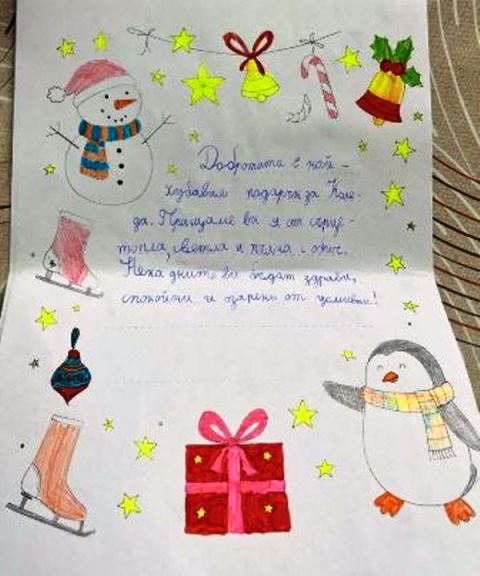 Добротата е най-
хубавия подарък за Коле-
да. Пращаме ви я от сърце -
топла, светла и пълна с обич.
Нека дните ви бъдат здрави,
спокойни и озарени от усмивки!